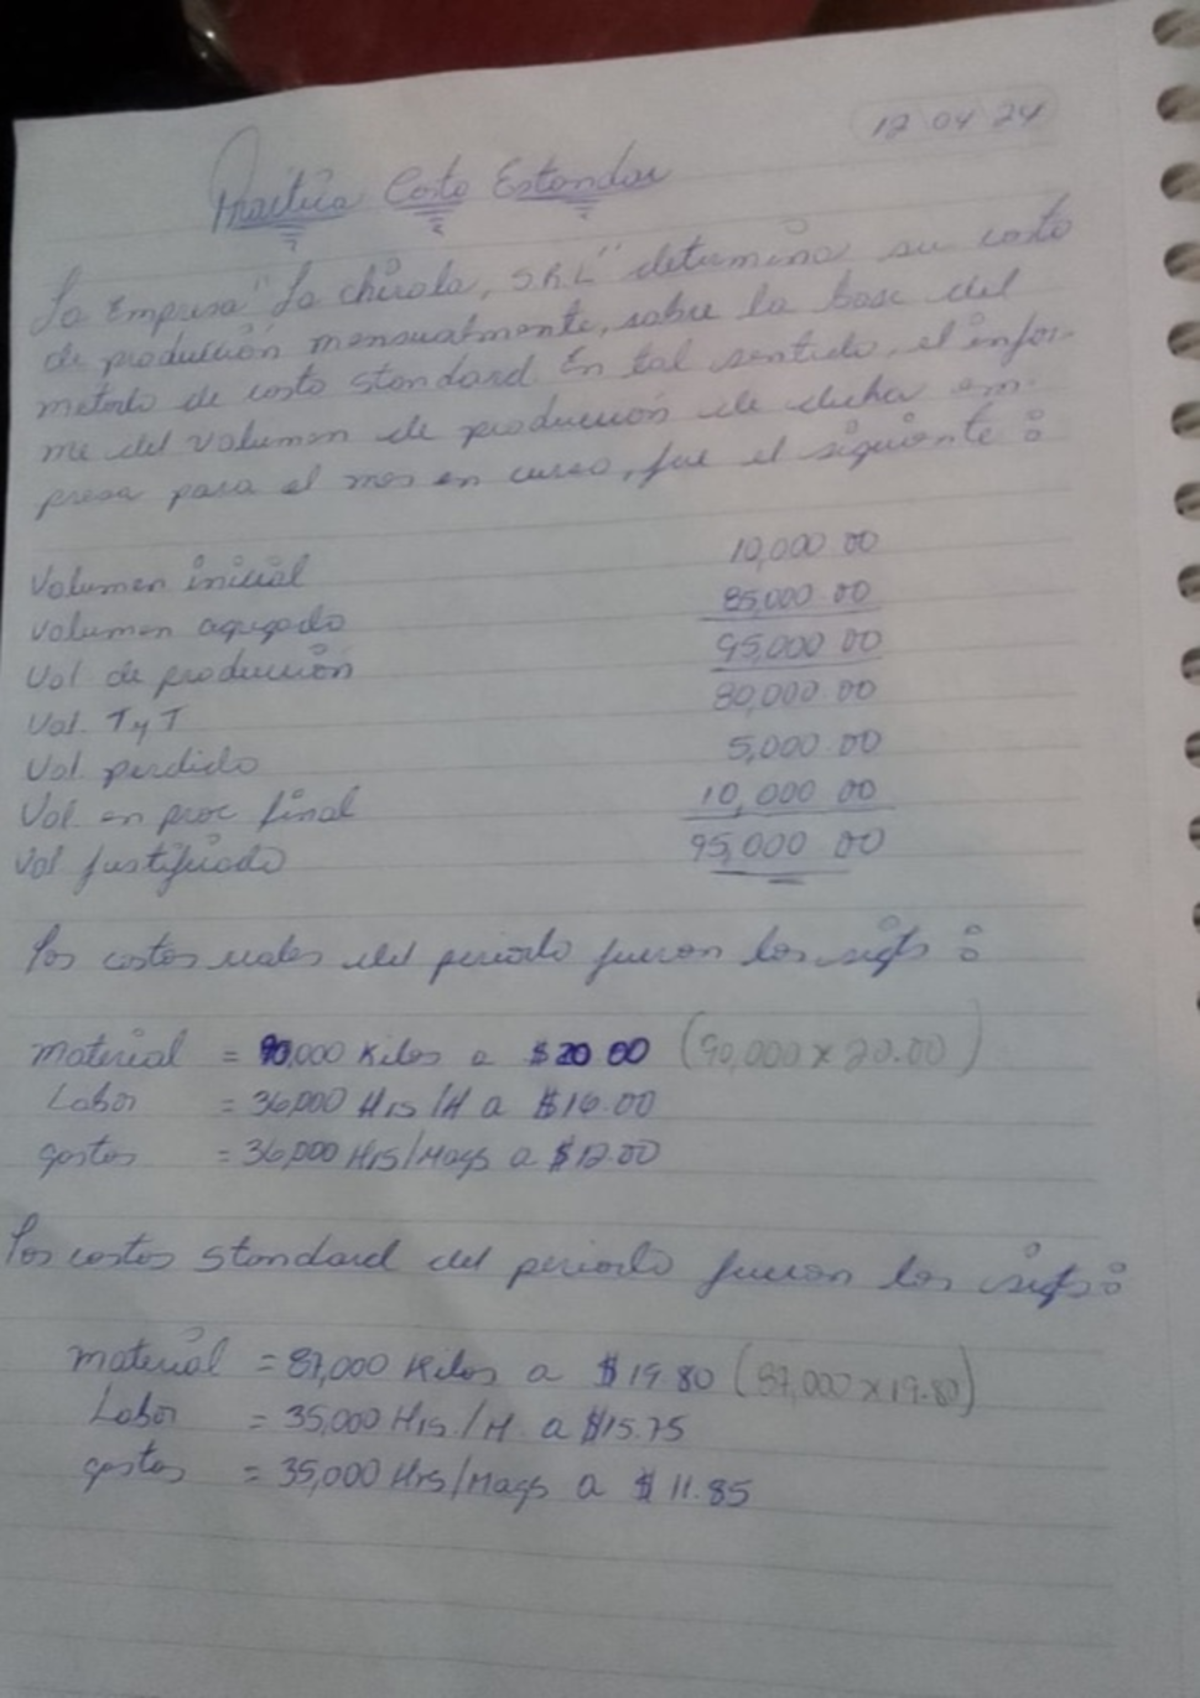 12 04 24
Practica Costo Estandar
La Empresa "La chirola, S.R.L" determina su costo
de producción mensualmente, sobre la base del
metodo de costo standard. En tal sentido, el infor-
me del volumen de producción de dicha em-
presa para el mes en curso, fue el siguiente :
Volumen inicial 10,000 00
Volumen agregado 85,000 00
Vol de producción 95,000 00
Vol. T y T 80,000 00
Vol perdido 5,000.00
Vol en proc final 10,000 00
Vol justificado 95,000 00
Los costos reales del periodo fueron los sigts :
Material = 90,000 Kilos a $20 00 (90,000 x 20.00)
Labor = 36,000 Hrs/H a $16.00
gastos = 36,000 Hrs/Maqs a $12.00
Los costos standard del periodo fueron los sigts :
Material = 87,000 Kilos a $19 80 (87,000 x 19.80)
Labor = 35,000 Hrs./H. a $15.75
gastos = 35,000 Hrs/Maqs a $ 11.85